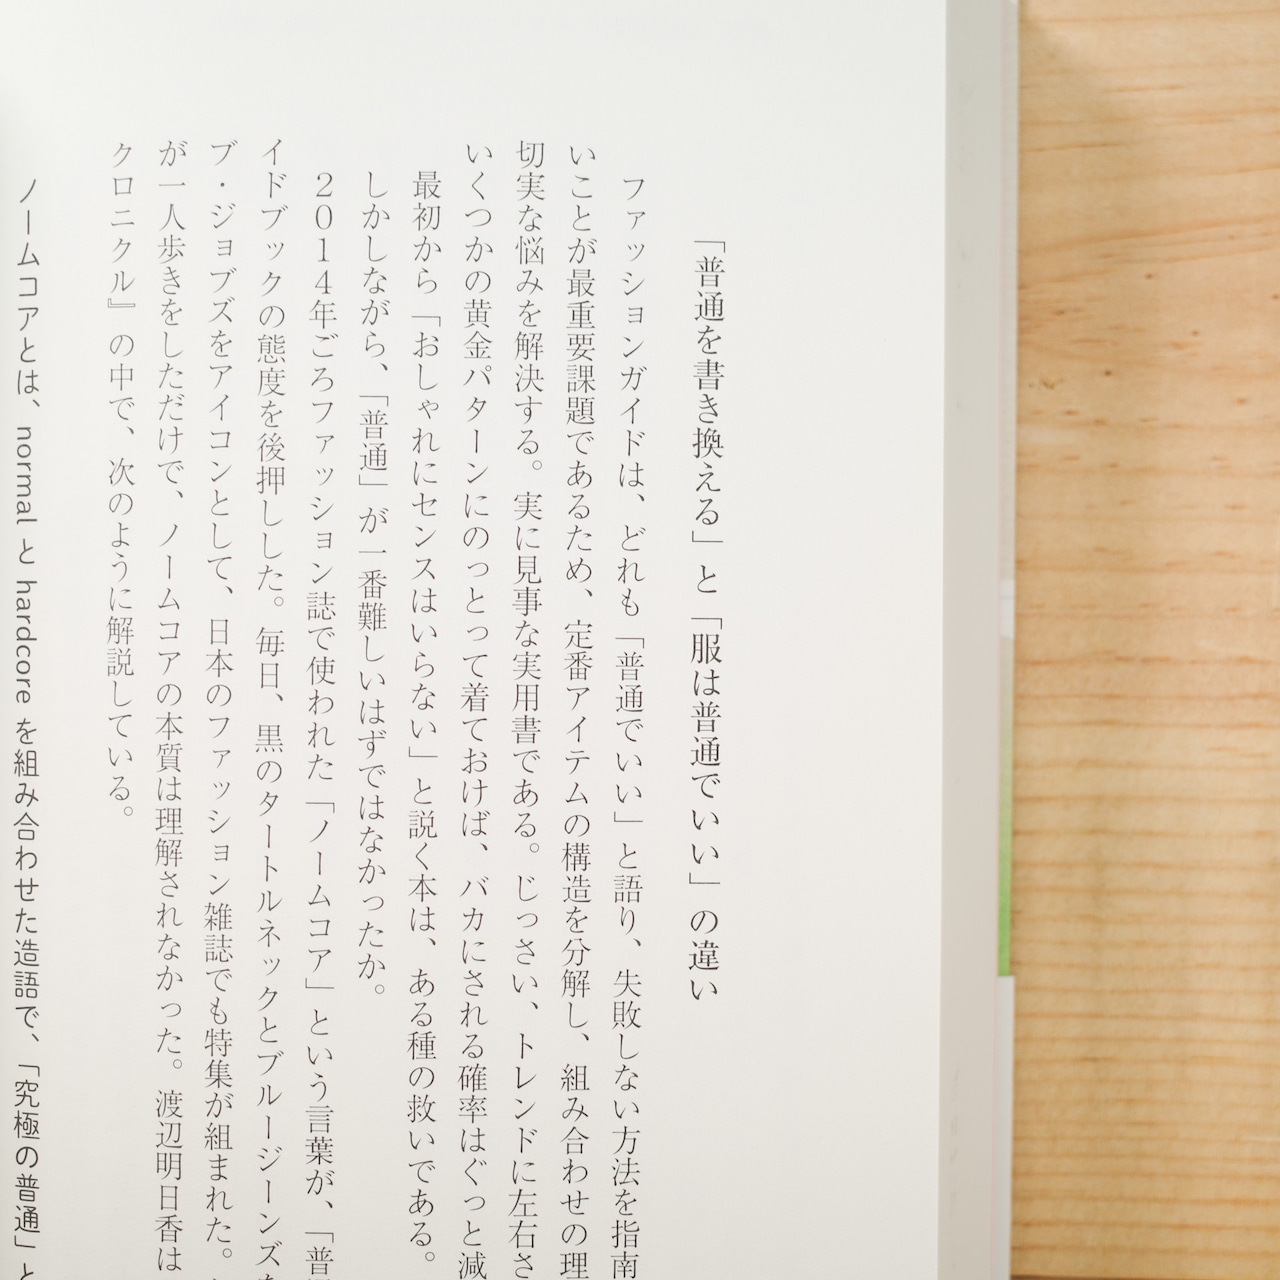 「普通を書き換える」と「服は普通でいい」の違い
ファッションガイドは、どれも「普通でいい」と語り、失敗しない方法を指南
いことが最重要課題であるため、定番アイテムの構造を分解し、組み合わせの理
切実な悩みを解決する。実に見事な実用書である。じっさい、トレンドに左右さ
いくつかの黄金パターンにのっとって着ておけば、バカにされる確率はぐっと減
最初から「おしゃれにセンスはいらない」と説く本は、ある種の救いである。
しかしながら、「普通」が一番難しいはずではなかったか。
2014年ごろファッション誌で使われた「ノームコア」という言葉が、「普
イドブックの態度を後押しした。毎日、黒のタートルネックとブルージーンズを
ブ・ジョブズをアイコンとして、日本のファッション雑誌でも特集が組まれた。
が一人歩きをしただけで、ノームコアの本質は理解されなかった。渡辺明日香は
クロニクル』の中で、次のように解説している。
ノームコアとは、normal と hardcore を組み合わせた造語で、「究極の普通」と